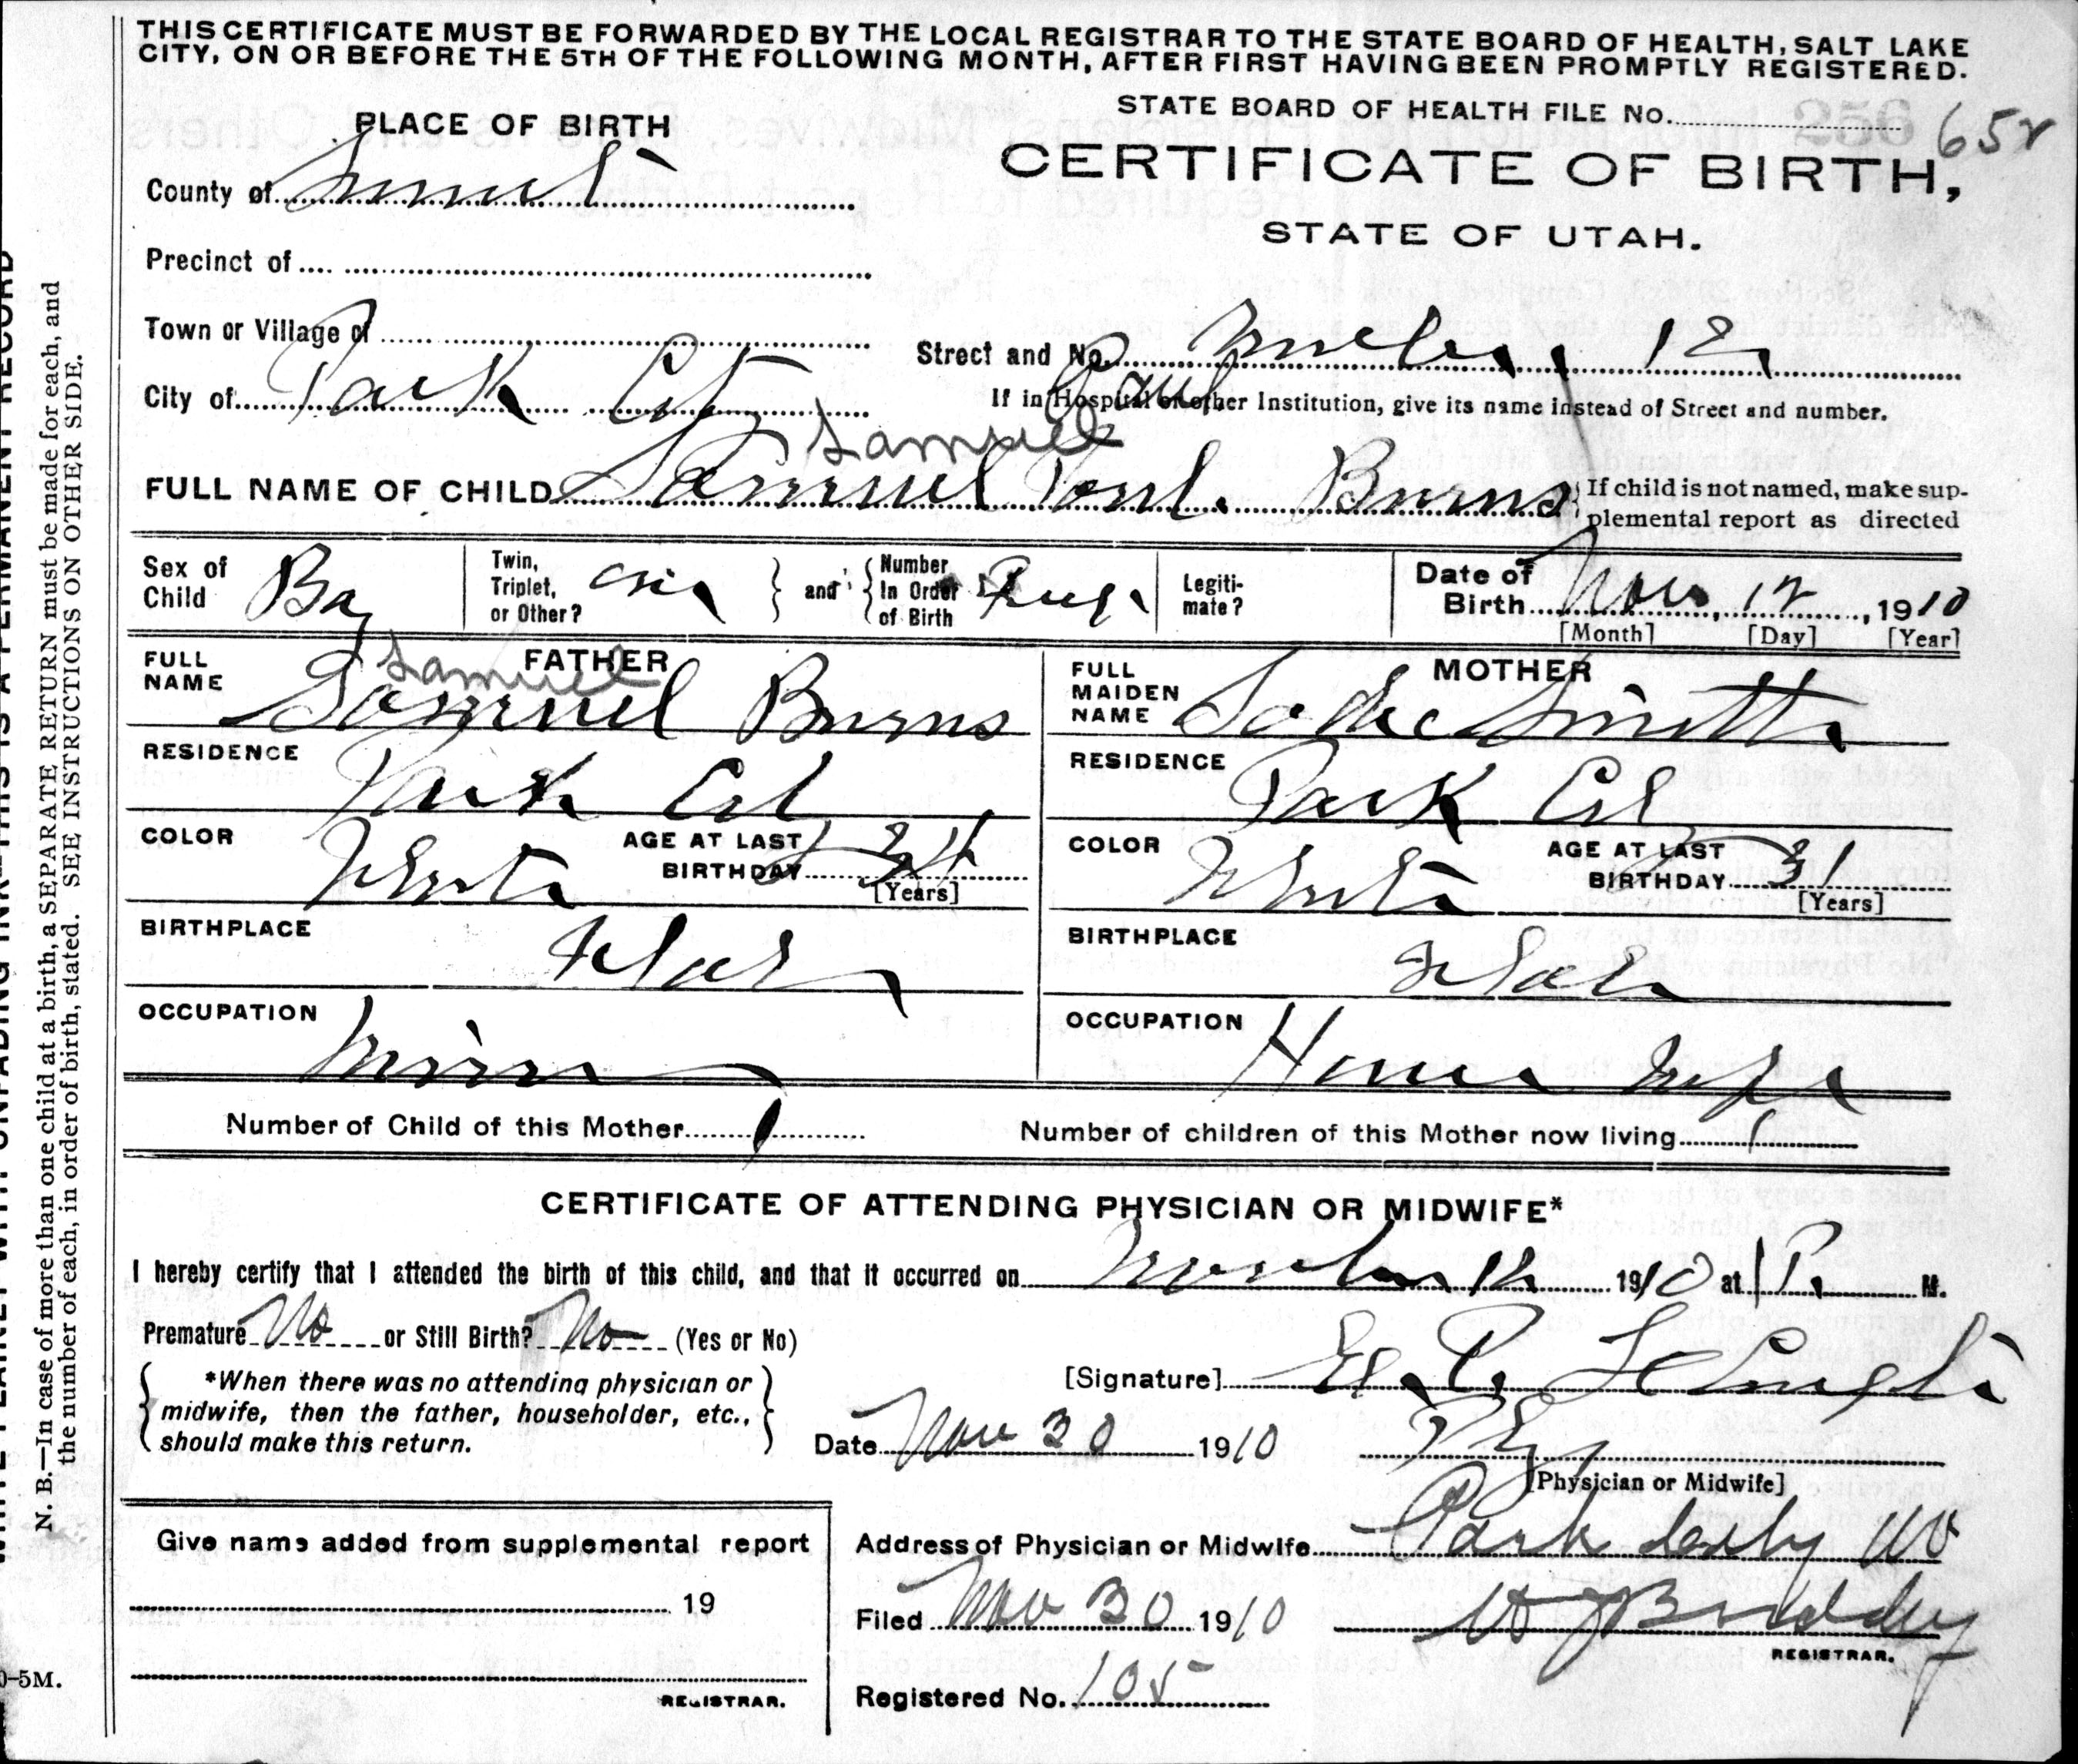 THIS CERTIFICATE MUST BE FORWARDED BY THE LOCAL REGISTRAR TO THE STATE BOARD OF HEALTH, SALT LAKE
CITY, ON OR BEFORE THE 5TH OF THE FOLLOWING MONTH, AFTER FIRST HAVING BEEN PROMPTLY REGISTERED.
STATE BOARD OF HEALTH FILE No. 256 658
PLACE OF BIRTH
CERTIFICATE OF BIRTH,
STATE OF UTAH.
County of Summit
Precinct of
Town or Village of
Street and No.
City of Park City
If in Hospital or other Institution, give its name instead of Street and number.
Samuel Paul
FULL NAME OF CHILD Samuel Paul Burns
If child is not named, make sup-
plemental report as directed
Sex of Child Boy
Twin, Triplet, or Other?
and
Number In Order of Birth
Legiti-mate?
Date of Birth Nov 12, 1910
[Month] [Day] [Year]
FATHER
FULL NAME Samuel Burns
Samuel
RESIDENCE Park City
COLOR White
AGE AT LAST BIRTHDAY
[Years]
BIRTHPLACE Utah
OCCUPATION Miner
MOTHER
FULL MAIDEN NAME Sadie
RESIDENCE Park City
COLOR White
AGE AT LAST BIRTHDAY 31
[Years]
BIRTHPLACE Utah
OCCUPATION House Wife
Number of Child of this Mother 1
Number of children of this Mother now living 1
CERTIFICATE OF ATTENDING PHYSICIAN OR MIDWIFE*
I hereby certify that I attended the birth of this child, and that it occurred on November 12 1910 at 1 P. M.
Premature No or Still Birth? No (Yes or No)
*When there was no attending physician or
midwife, then the father, householder, etc.,
should make this return.
[Signature] E. P.
Date Nov 30 1910
[Physician or Midwife]
Give name added from supplemental report
19
REGISTRAR.
Address of Physician or Midwife Park City
Filed Nov 30 1910
REGISTRAR.
Registered No. 105
N. B.—In case of more than one child at a birth, a SEPARATE RETURN must be made for each, and
the number of each, in order of birth, stated. SEE INSTRUCTIONS ON OTHER SIDE.
0-5M.